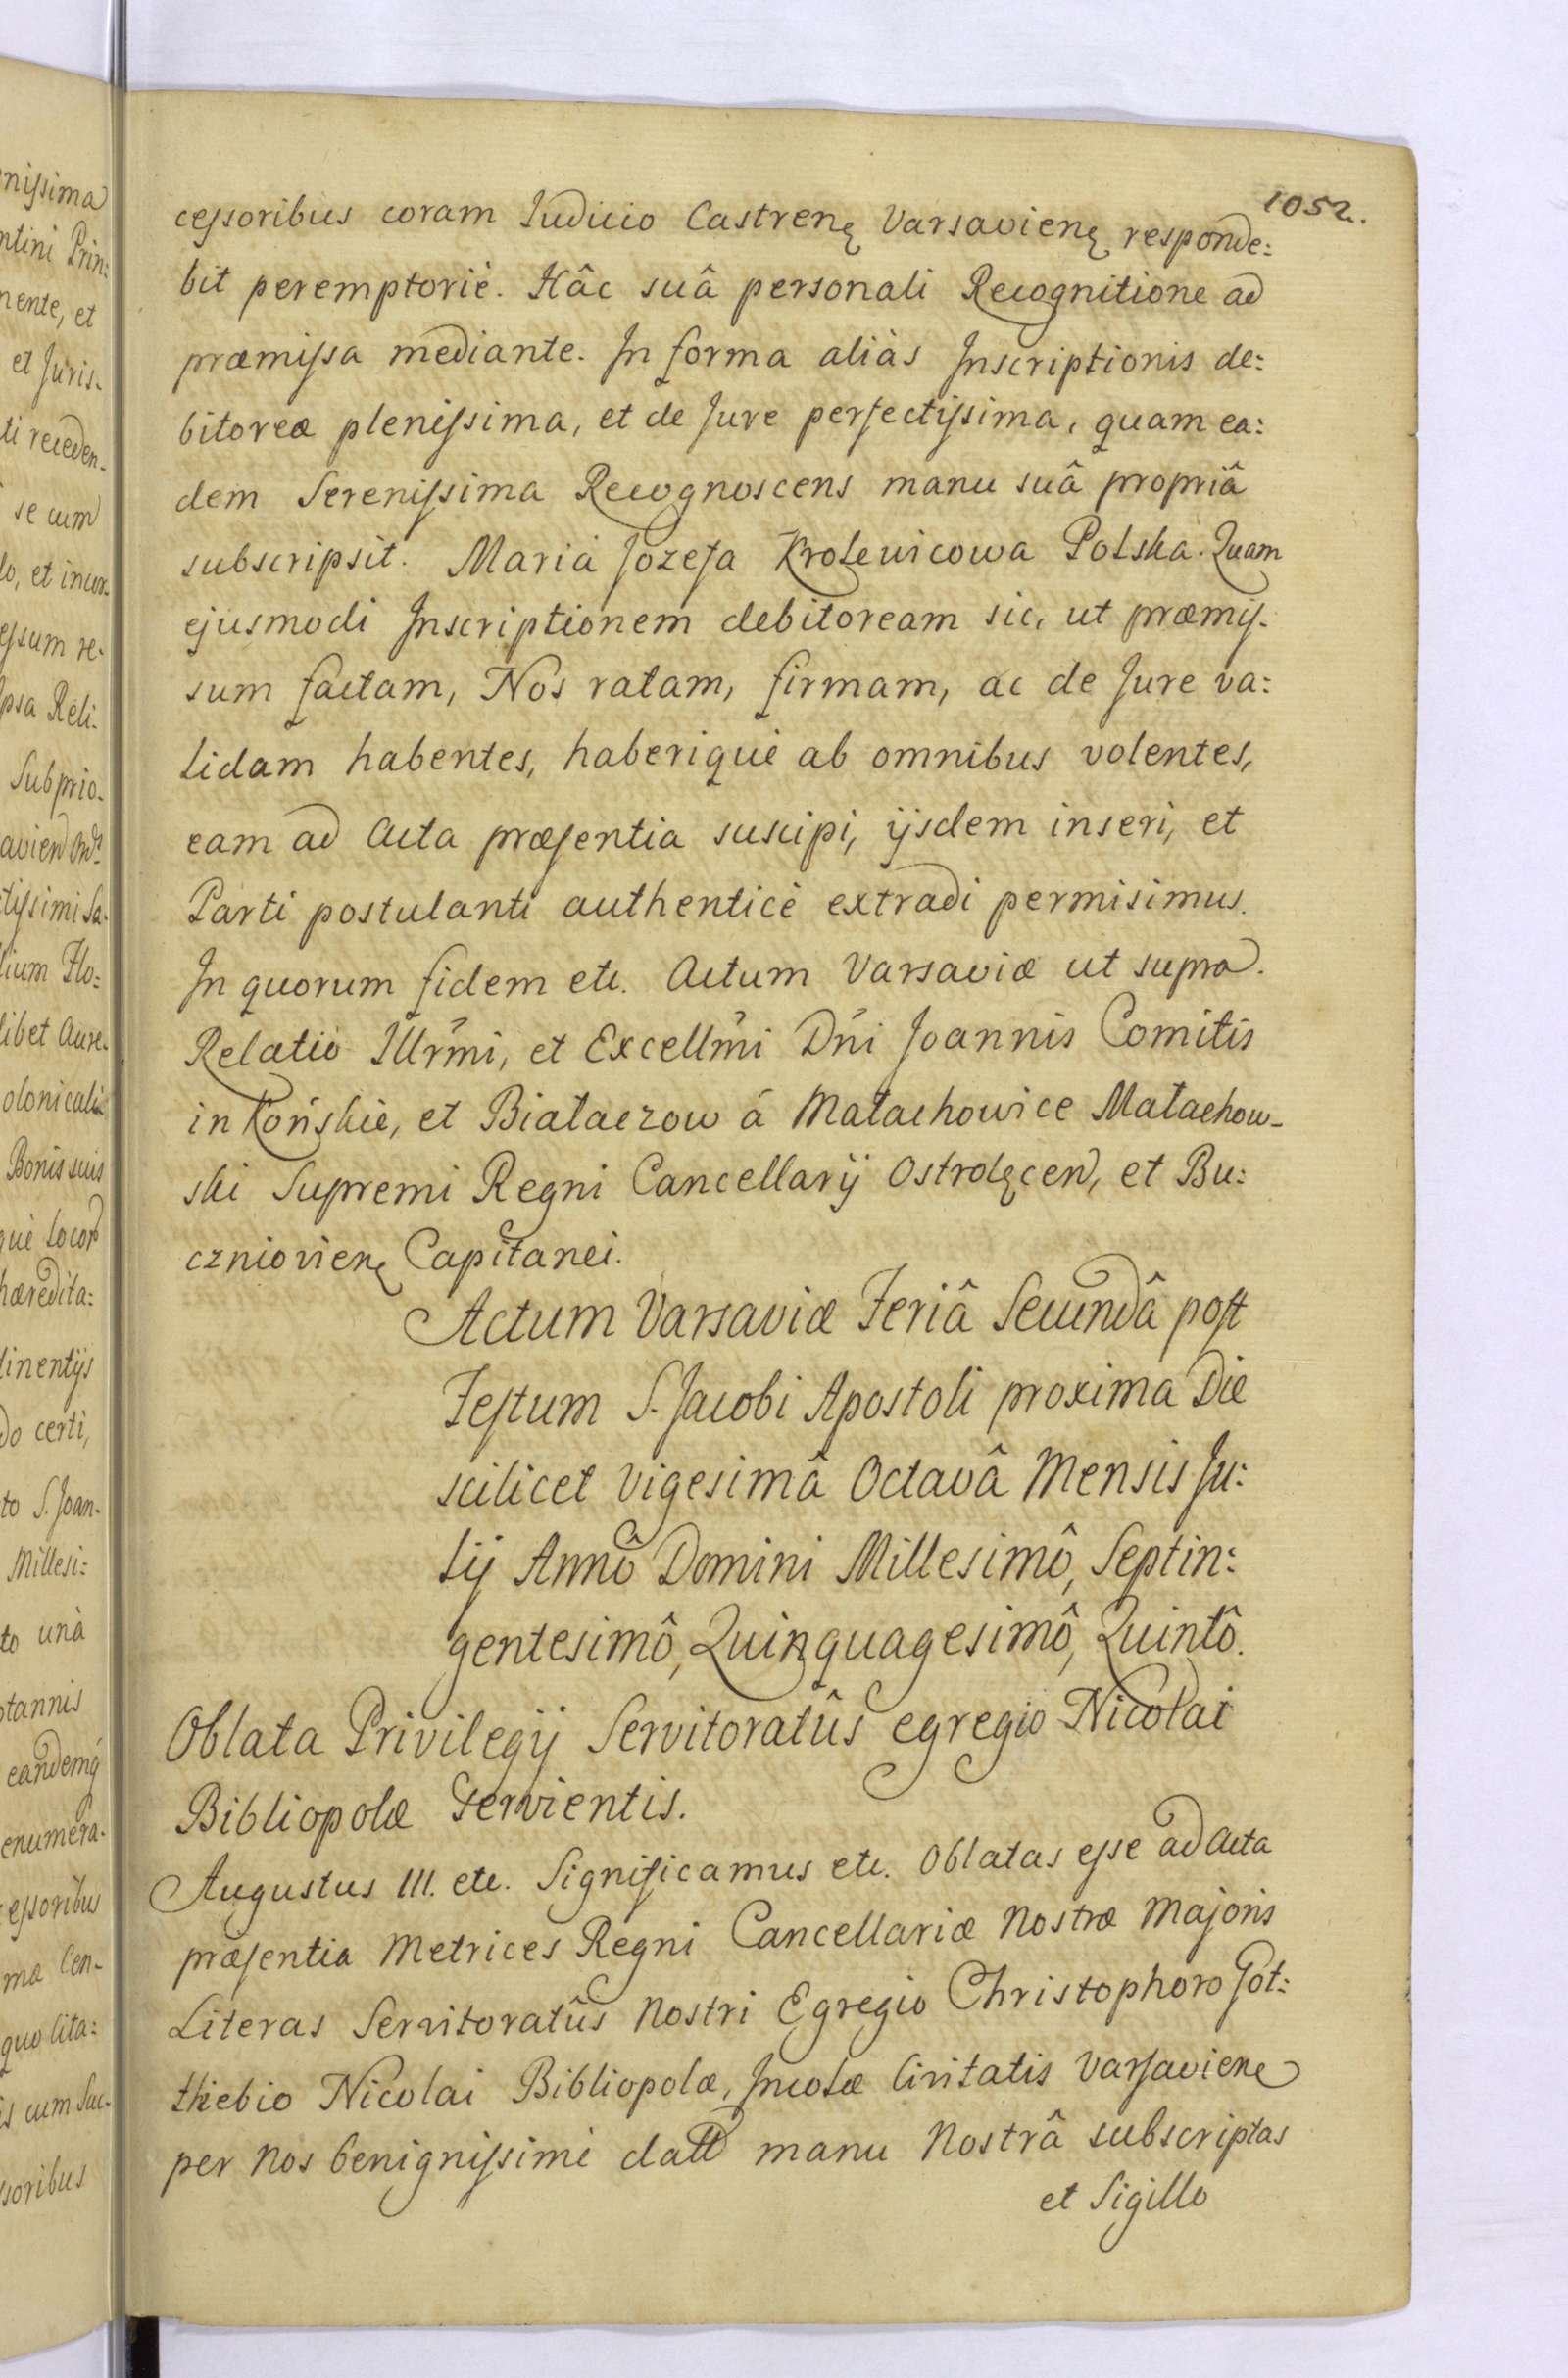 1052.
cessoribus coram Iudicio Castrenę Varsavienę responde:
bit peremptoriè. Hâc suâ personali Recognitione ad
præmissa mediante. In forma aliàs Inscriptionis de:
bitoreæ plenissima, et de Jure perfectissima, quam ea:
dem Serenissima Recognoscens manu suâ propriâ
subscripsit. Maria Jozefa Krolewicowa Polska. Quam
ejusmodi Inscriptionem debitoream sic, ut præmis-
sum factam, Nos ratam, firmam, ac de Jure va:
lidam habentes, haberiquè ab omnibus volentes,
eam ad Acta præsentia suscipi, ijsdem inseri, et
Parti postulanti authenticè extradi permisimus.
In quorum fidem etc. Actum Varsaviæ ut supra.
Relatio Illrmi, et Excellmi Dni Joannis Comitis
in Końskie, et Białaczow á Małachowice Małachow-
ski Supremi Regni Cancellarij Ostrolęcen, et Bu:
cznioviene Capitanei.
Actum Varsaviæ Feriâ Secundâ post
Festum S. Jacobi Apostoli proxima Die
scilicet vigesimâ Octavâ Mensis Ju:
lij Annô Domini Millesimô, Septin:
gentesimô, Quinquagesimô, Quintô.
Oblata Privilegij Servitoratûs egregio Nicolai
Bibliopolæ servientis.
Augustus III. etc. Significamus etc. Oblatas esse ad Acta
præsentia Metrices Regni Cancellariæ Nostræ Majoris
Literas Servitoratûs Nostri Egregio Christophoro Got:
thiebio Nicolai Bibliopolæ, Incolæ Civitatis Varsaviene
per Nos benignissimè datt manu Nostrâ subscriptas
et Sigillo